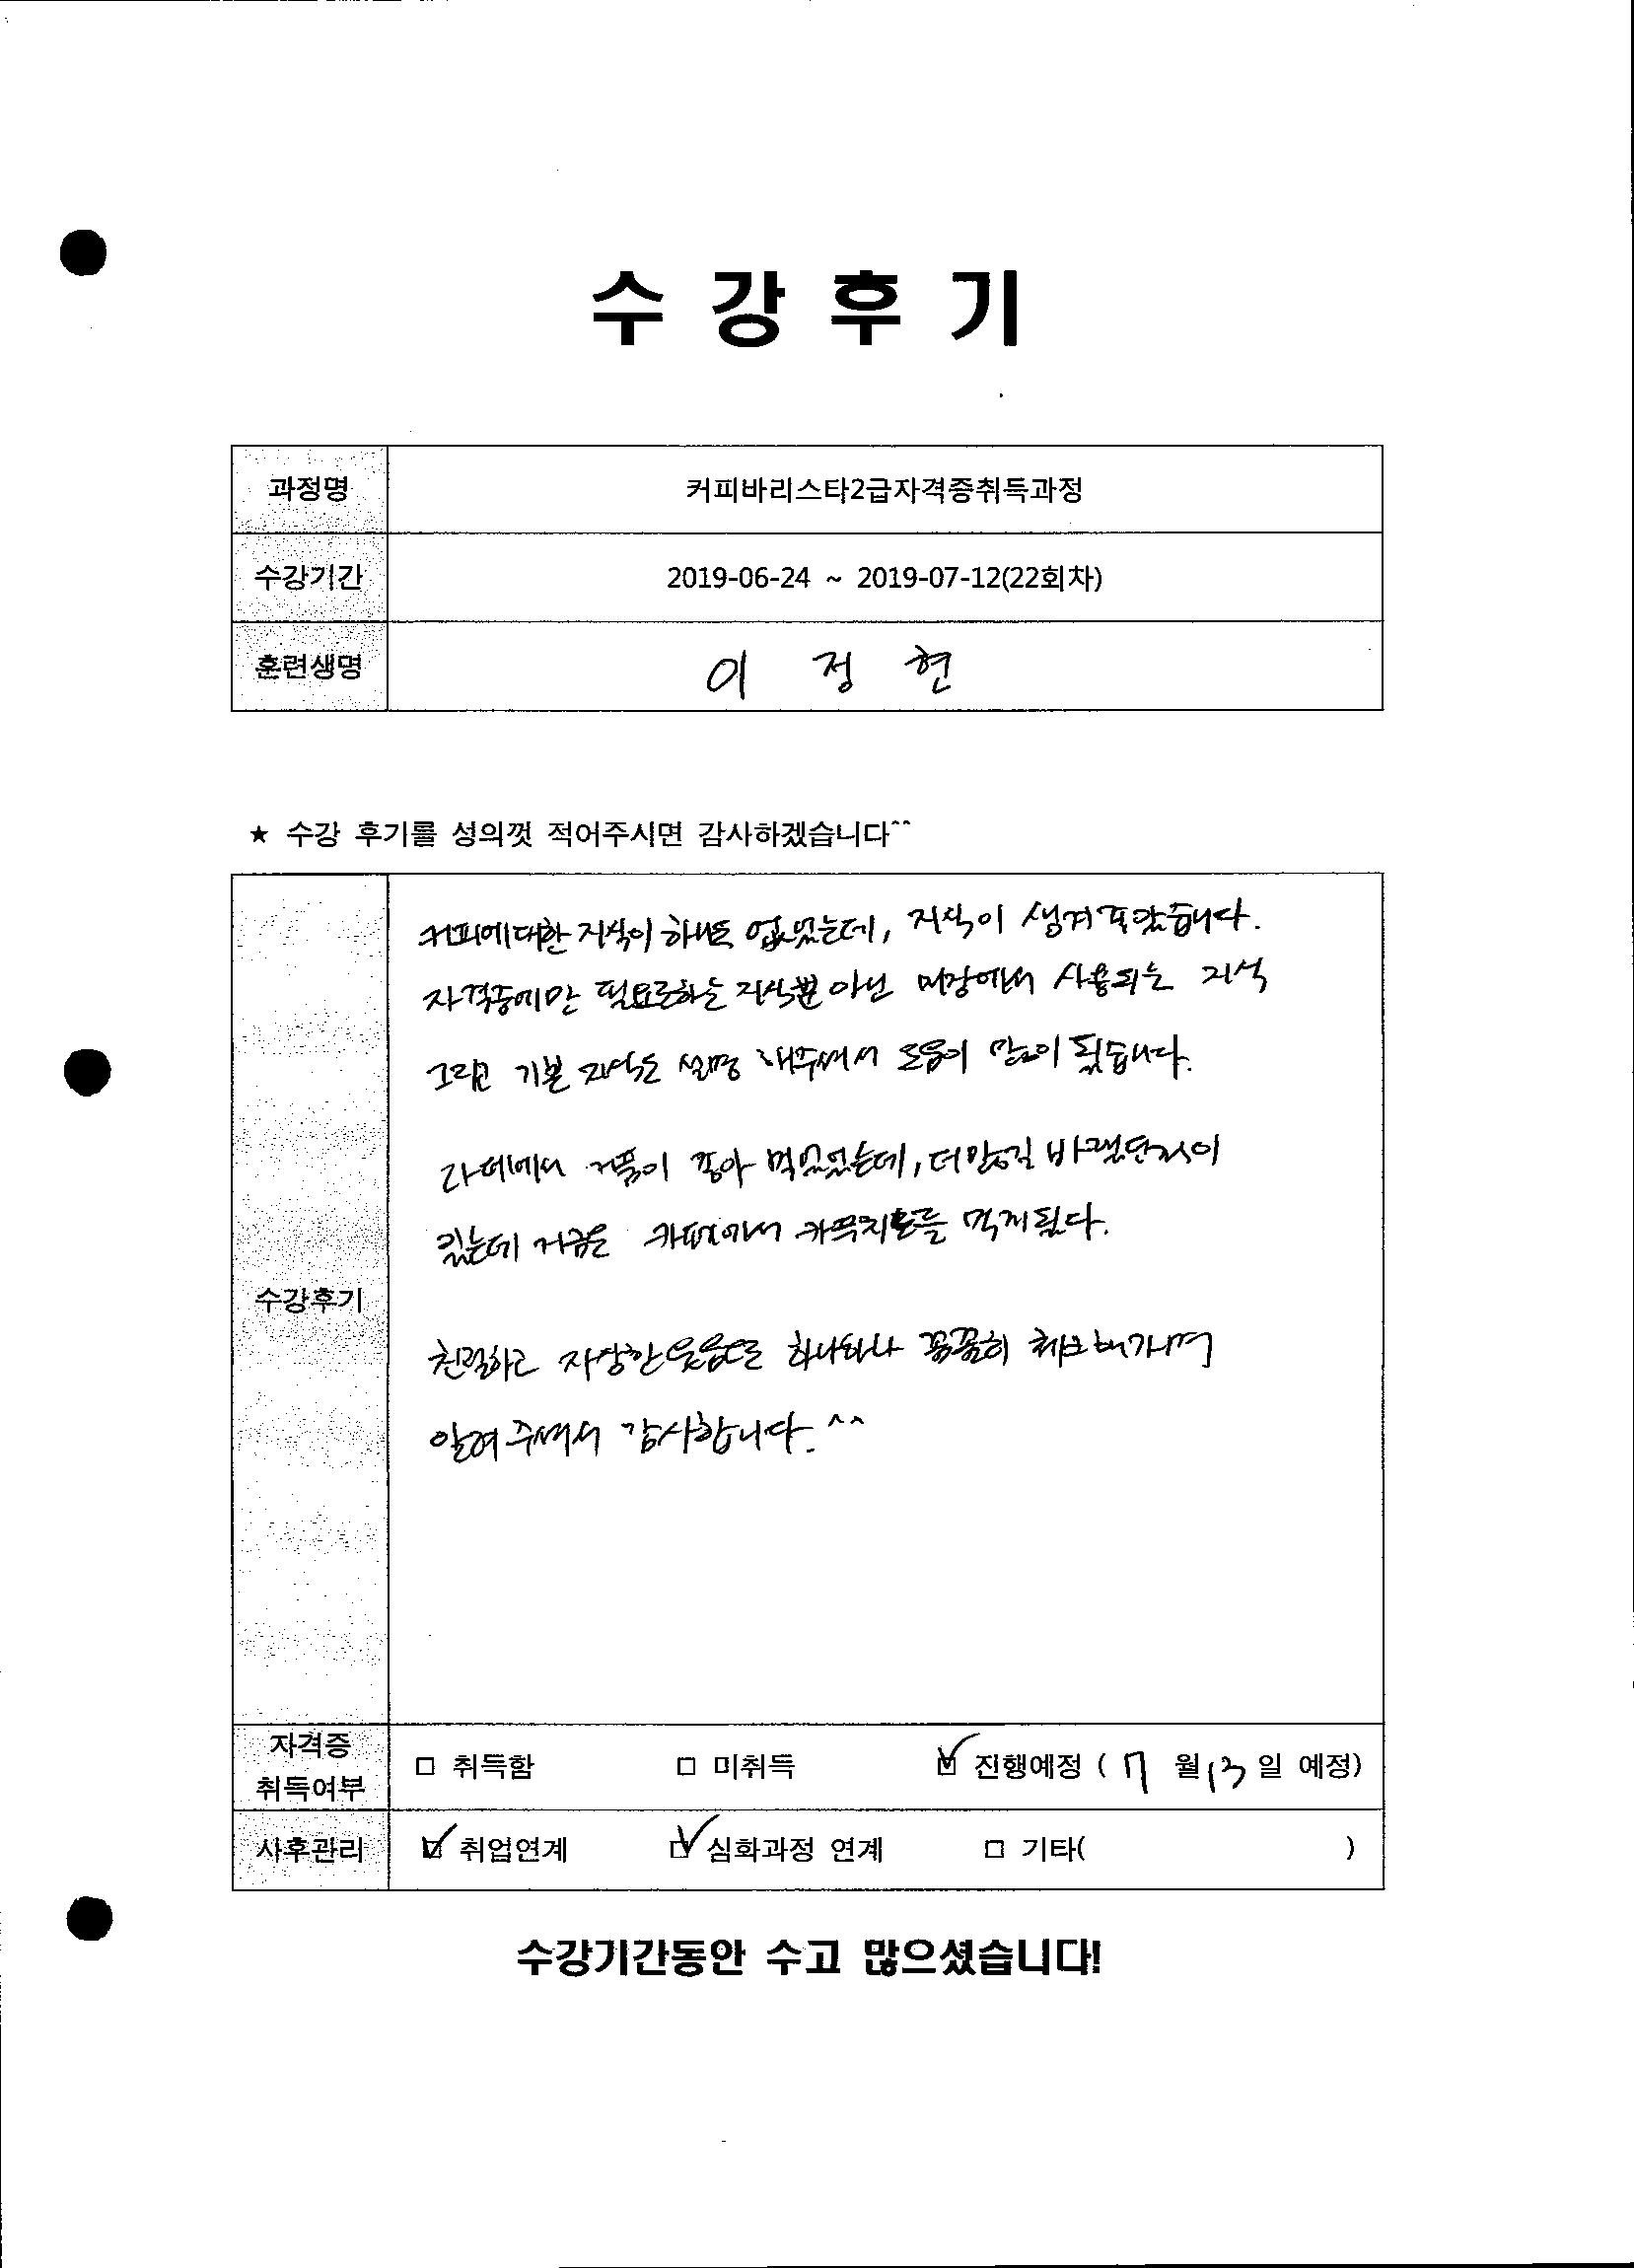 수 강 후 기
과정명 커피바리스타2급자격증취득과정
수강기간 2019-06-24 ~ 2019-07-12(22회차)
훈련생명 이 정 현
★ 수강 후기를 성의껏 적어주시면 감사하겠습니다^^
수강후기
커피에대한 지식이 하나도 없었는데, 지식이 생겨 좋았습니다.
자격증에만 필요로하는 지식뿐 아닌 매장에서 사용되는 지식
그리고 기본 지식도 설명 해주셔서 도움이 많이 됬습니다.
라떼에서 거품이 좋아 먹었었는데, 더많길 바랬던적이
있는데 지금은 카페에서 카푸치노를 먹게된다.
친절하고 자상한 웃음으로 하나하나 꼼꼼히 체크해가며
알려주셔서 감사합니다.^^
자격증
취득여부 □ 취득함 □ 미취득 ☑ 진행예정 ( 7 월 13 일 예정)
사후관리 ☑ 취업연계 ☑ 심화과정 연계 □ 기타( )
수강기간동안 수고 많으셨습니다!